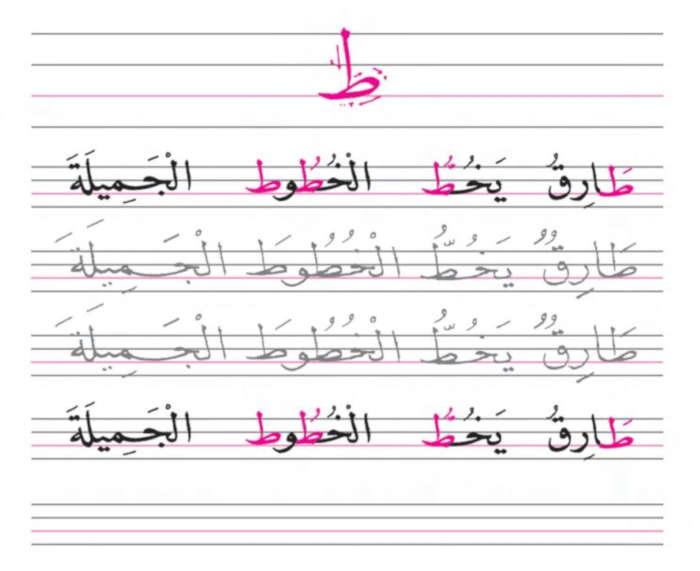 ط
طَارِقُ يَخُطُّ الْخُطُوط الْجَمِيلَةَ
طَارِقٌ يَخُطُّ الْخُطُوطَ الْجَمِيلَةَ
طَارِقٌ يَخُطُّ الْخُطُوطَ الْجَمِيلَةَ
طَارِقُ يَخُطُّ الْخُطُوط الْجَمِيلَةَ